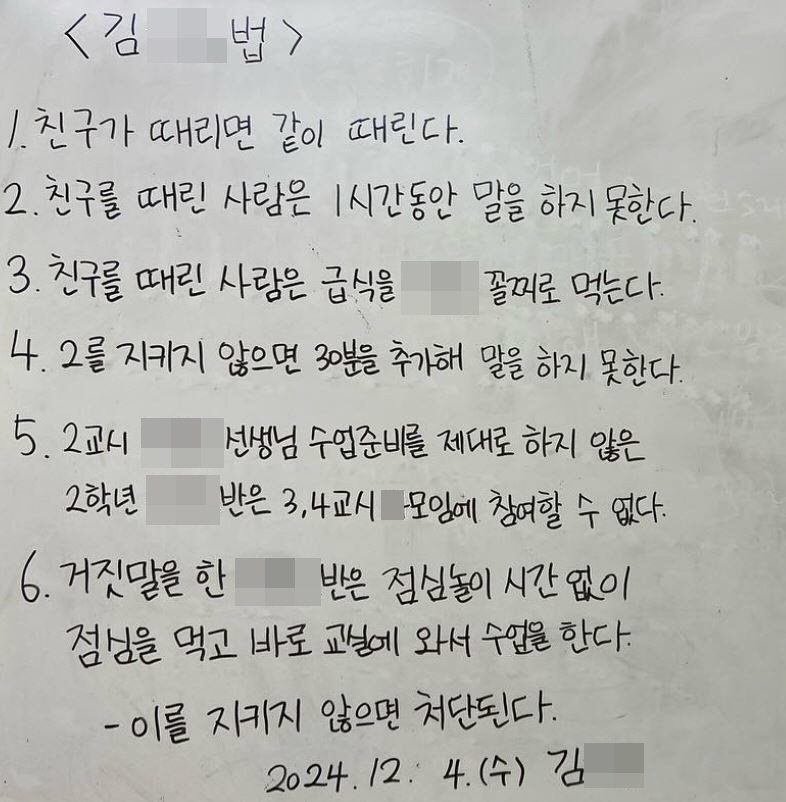 <김 법>
1. 친구가 때리면 같이 때린다.
2. 친구를 때린 사람은 1시간동안 말을 하지 못한다.
3. 친구를 때린 사람은 급식을 꼴찌로 먹는다.
4. 2를 지키지 않으면 30분을 추가해 말을 하지 못한다.
5. 2교시 선생님 수업준비를 제대로 하지 않은
2학년 반은 3,4교시 모임에 참여할 수 없다.
6. 거짓말을 한 반은 점심놀이 시간 없이
점심을 먹고 바로 교실에 와서 수업을 한다.
- 이를 지키지 않으면 처단된다.
2024. 12. 4.(수) 김